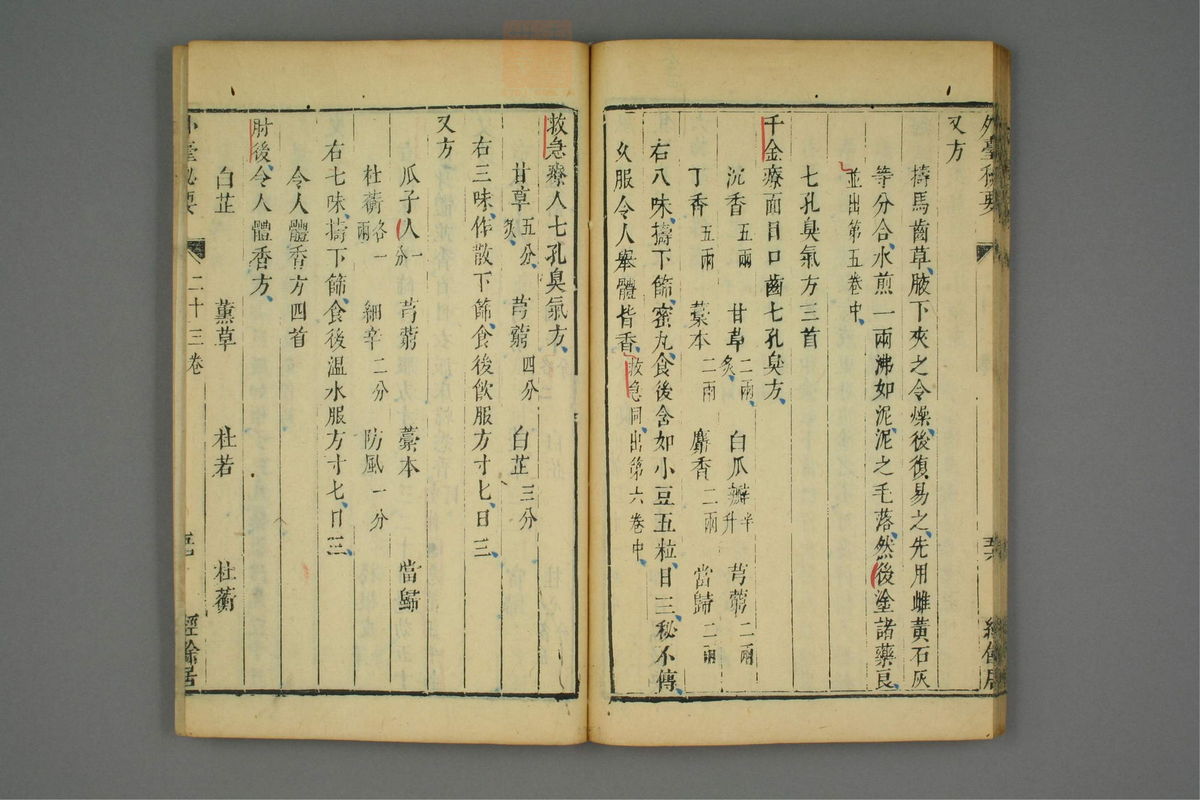 外臺秘要
又方
擣馬齒草腋下夾之令燥後復易之先用雌黃石灰
等分合水煎一兩沸如泥泥之毛落然後塗諸藥良
並出第五卷中
七孔臭氣方三首
千金療面目口齒七孔臭方
沉香五兩 甘草二兩炙 白瓜瓣半升 芎藭二兩
丁香五兩 藁本二兩 麝香二兩 當歸二兩
右八味擣下篩蜜丸食後含如小豆五粒日三秘不傳
久服令人舉體皆香救急同出第六卷中
救急療人七孔臭氣方
甘草五分炙 芎藭四分 白芷三分
右三味作散下篩食後飲服方寸匕日三
又方
瓜子人一分 芎藭 藁本 當歸
杜蘅各一兩 細辛二分 防風一分
右七味擣下篩食後溫水服方寸匕日三
令人體香方四首
肘後令人體香方
白芷 薰草 杜若 杜蘅
外臺秘要 二十三卷 經餘居